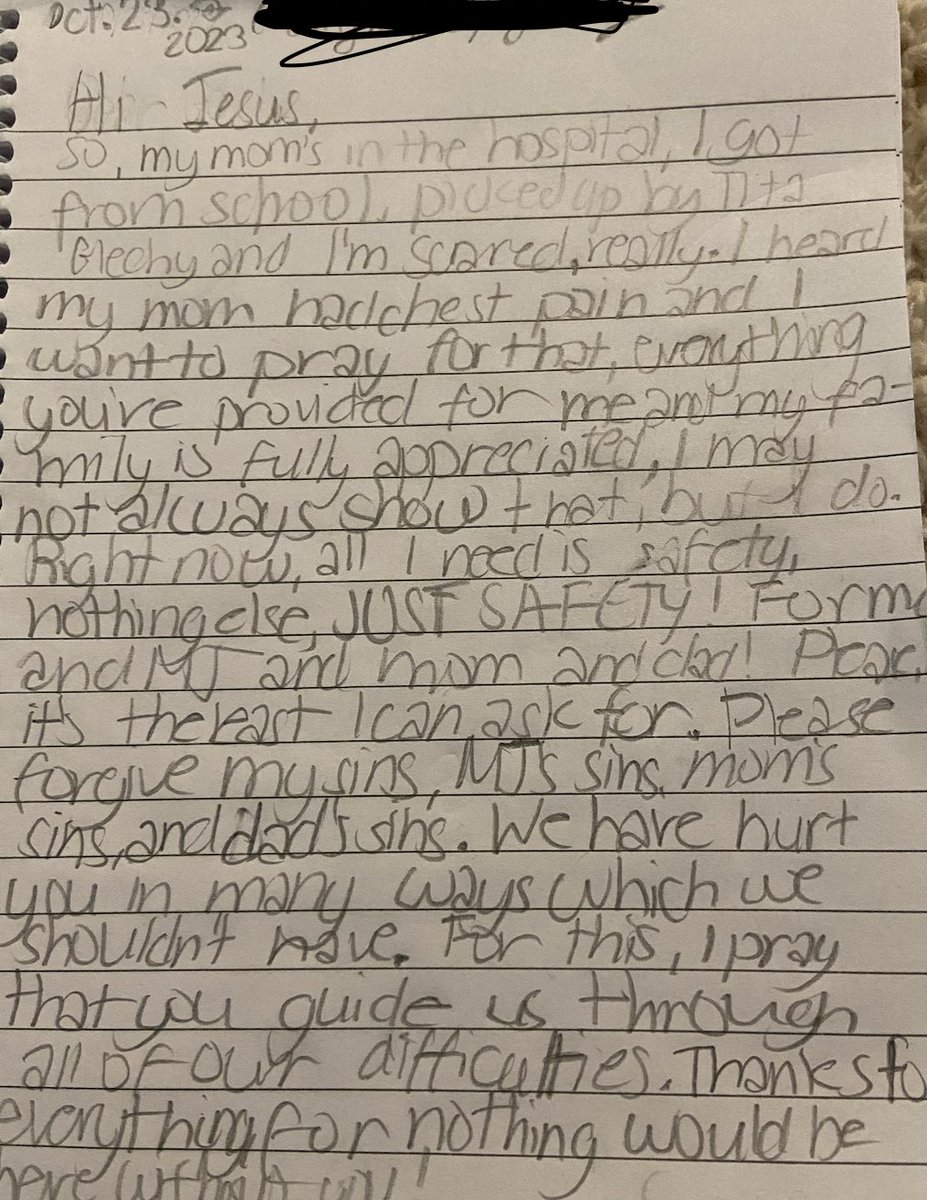 Oct. 23.
2023
Hi Jesus,
so, my mom's in the hospital, I got
from school, picked up by Tita
Blechy and I'm scared, really. I heard
my mom had chest pain and I
want to pray for that, everything
you've provided for me and my fa-
mily is fully appreciated, I may
not always show that, but I do.
Right now, all I need is safety,
nothing else, JUST SAFETY! For me
and MJ and mom and dad!
it's the least I can ask for. Please
forgive my sins, MJ's sins, mom's
sins, and dad's sins. We have hurt
you in many ways which we
shouldn't have. For this, I pray
that you guide us through
all of our difficulties. Thanks fo
everything for nothing would be
here without you!